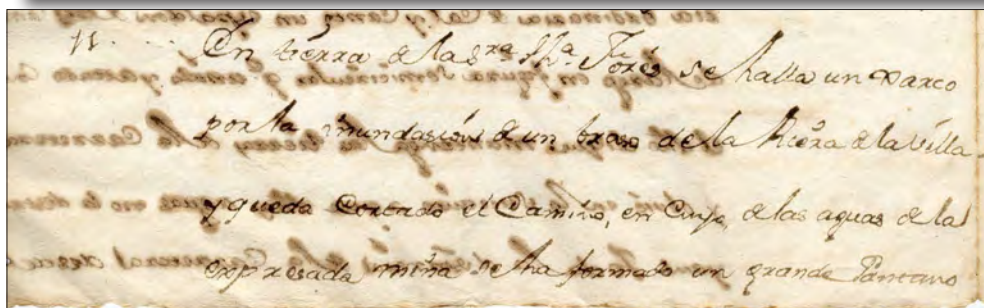 11.... En tierra de la S.ra Th.a Torés se halla un Barco
por la inundasción d un braso de la Riera d la Villa
y queda Cortado el Camino, en Cuyo, d las aguas de la
expresada mina se ha formado un grande Pantano